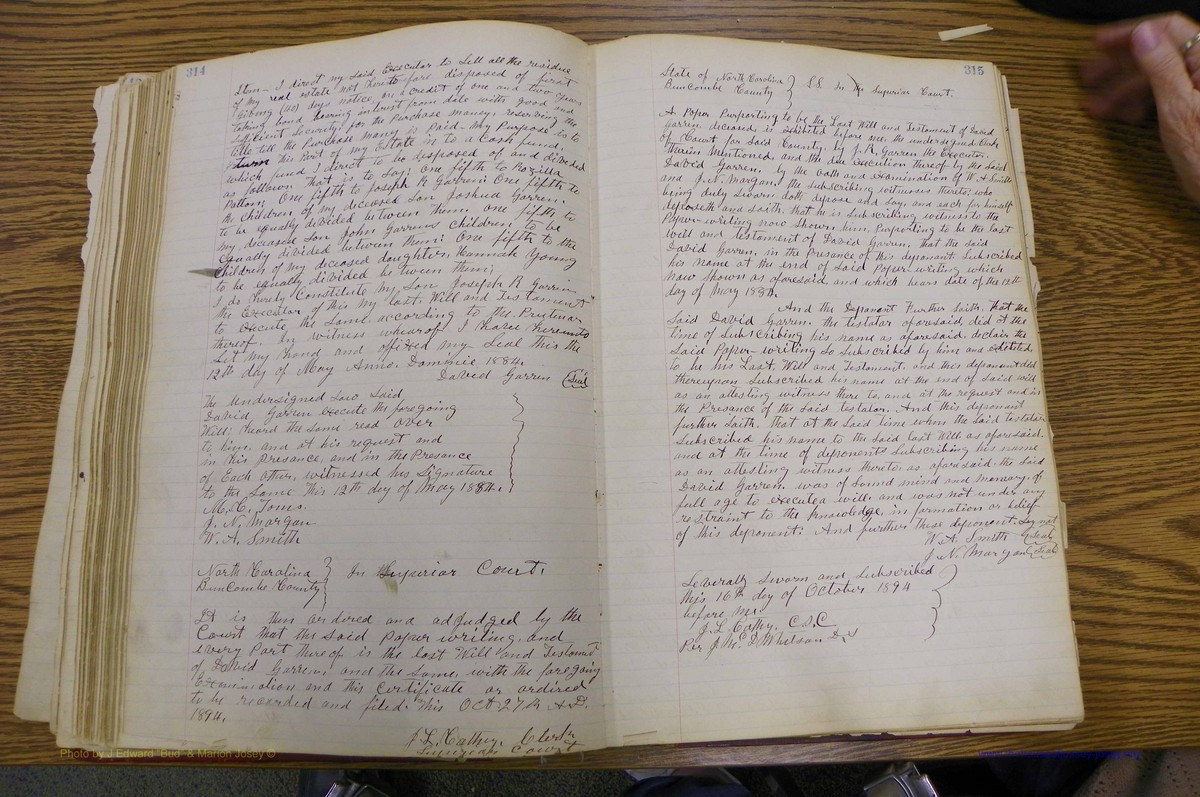 314
Item - I direct my said Executor to Sell all the residue
of my real estate not here to fore disposed of first
giving (40) days notice, on a credit of one and two years
taking bond bearing interest from date with good and
sufficient Security, for the Purchase Money, reserving the
title till the Purchase Money is Paid - My Purpose is to
turn this Part of my Estate in to a Cash fund,
which fund I direct to be disposed of and divided
as follows, that is to Say: One fifth to Rozilla
Patton; One fifth to Joseph R Garren; One fifth to
the Children of my deceased Son Joshua Garren,
to be equally divided between them, one fifth to
my deceased Son John Garrens Children, to be
Equally divided between them; One fifth to the
Children of my deceased daughter, Hannah Young
to be equally divided between them;
I do hereby Constitute my Son Joseph R Garren
the Executor of this my last, Will and Testament
to Execute the Same according to the
thereof. In witness whearof I have hereunto
Set my hand and affixed my Seal this the
12th day of May Anno, Dominie 1884.
David Garren (Seal
The Undersigned Saw Said
David Garren Execute the foregoing
Will; heard the Same read over
to him, and at his request and
in his Presance, and in the Presance
of Each other, witnessed his Signature
to the Same this 12th day of May 1884.
J. N. Morgan
W. A. Smith
North Carolina } In Superior Court,
Buncombe County }
It is then ordired and adjudged by the
Court that the Said Paper writing, and
every Part thereof is the last Will and Testament
of David Garren, and the Same, with the foregoing
Examination and this Certificate ordired
to be recorded and filed. This Oct 27th A.D.
1894.
J. L. Cathey, Clerk
Superior Court
315
State of North Carolina } S.S. In the Superior Court,
Buncombe County }
A Paper Purporting to be the Last Will and Testament of David
Garren, deceased, is exhibited before me, the undersigned Clerk
of Court for Said County, by J. R. Garren the Executor,
therein Mentioned, and the due Execution thereof by the Said
David Garren, by the Oath and Examination of W. A. Smith
and J. N. Morgan, the Subscribing witnesses thereto; who
being duly Sworn doth depose and Say, and each for himself
deposeth and Saith, that he is Subscribing witness to the
Paper-writing now Shown him, Purporting to be the last
Will and testament of David Garren, that the Said
David Garren, in the Presance of this deponant, Subscribed
his name at the end of Said Paper-writing which
now Shown as aforesaid, and which bears date of the 12th
day of May
And the Deponant Further Saith, that the
Said David Garren, the testator aforesaid, did at the
time of Subscribing his name as aforesaid, declare the
Said Paper-writing So Subscribed by him and exhibited,
to be his Last, Will and Testament, and this deponant did
thereupon Subscribed his name at the end of Said will
as an attesting witness there to, and at the request and in
the Presance of the Said testator. And this deponant
further Saith, that at the Said time when the Said testator
Subscribed his name to the Said last Will as aforesaid,
and at the time of deponents Subscribing his name
as an attesting witness thereto, as aforesaid, the Said
David Garren, was of Sound mind and memory, of
full age to execute a will, and was not under any
restraint to the knowledge, in formation or belief
of this deponent: And further these deponent Say not
W. A. Smith (Seal
J. N. Morgan (Seal
Severally Sworn and Subscribed
this 16th day of October 1894
before me
J. L. Cathey, C.S.C
Per
Photo by J Edward "Bud" & Marion Josey ©